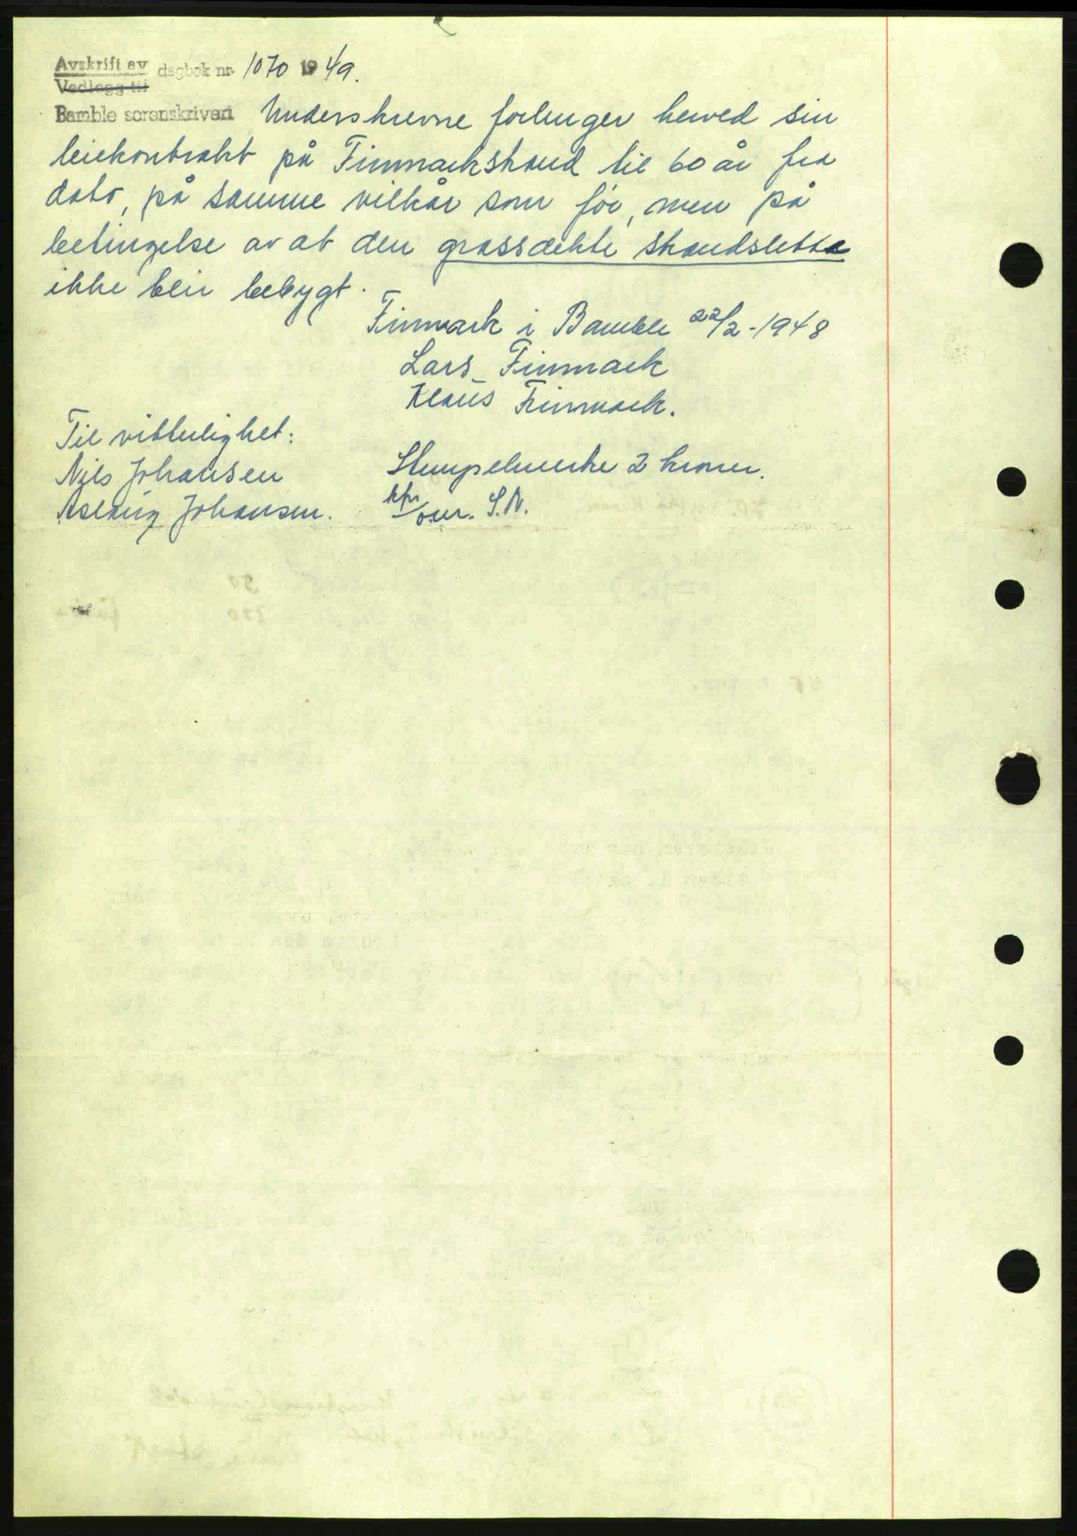 Avskrift av dagbok nr. 1070 1949.
Vedlegg til
Bamble sorenskriveri Underskrevne forlenger herved sin
leiekontrakt på Finmarkstrand til 60 år fra
dato, på samme vilkår som før, men på
betingelse av at den grassdekte strandslette
ikke blir bebygt.
Finmark i Bamble 22/2-1948
Lars Finmark
Klaus Finmark.
Til vitterlighet:
Nils Johansen
Aslaug Johansen.
Stempelmerke 2 kroner.
S.N.